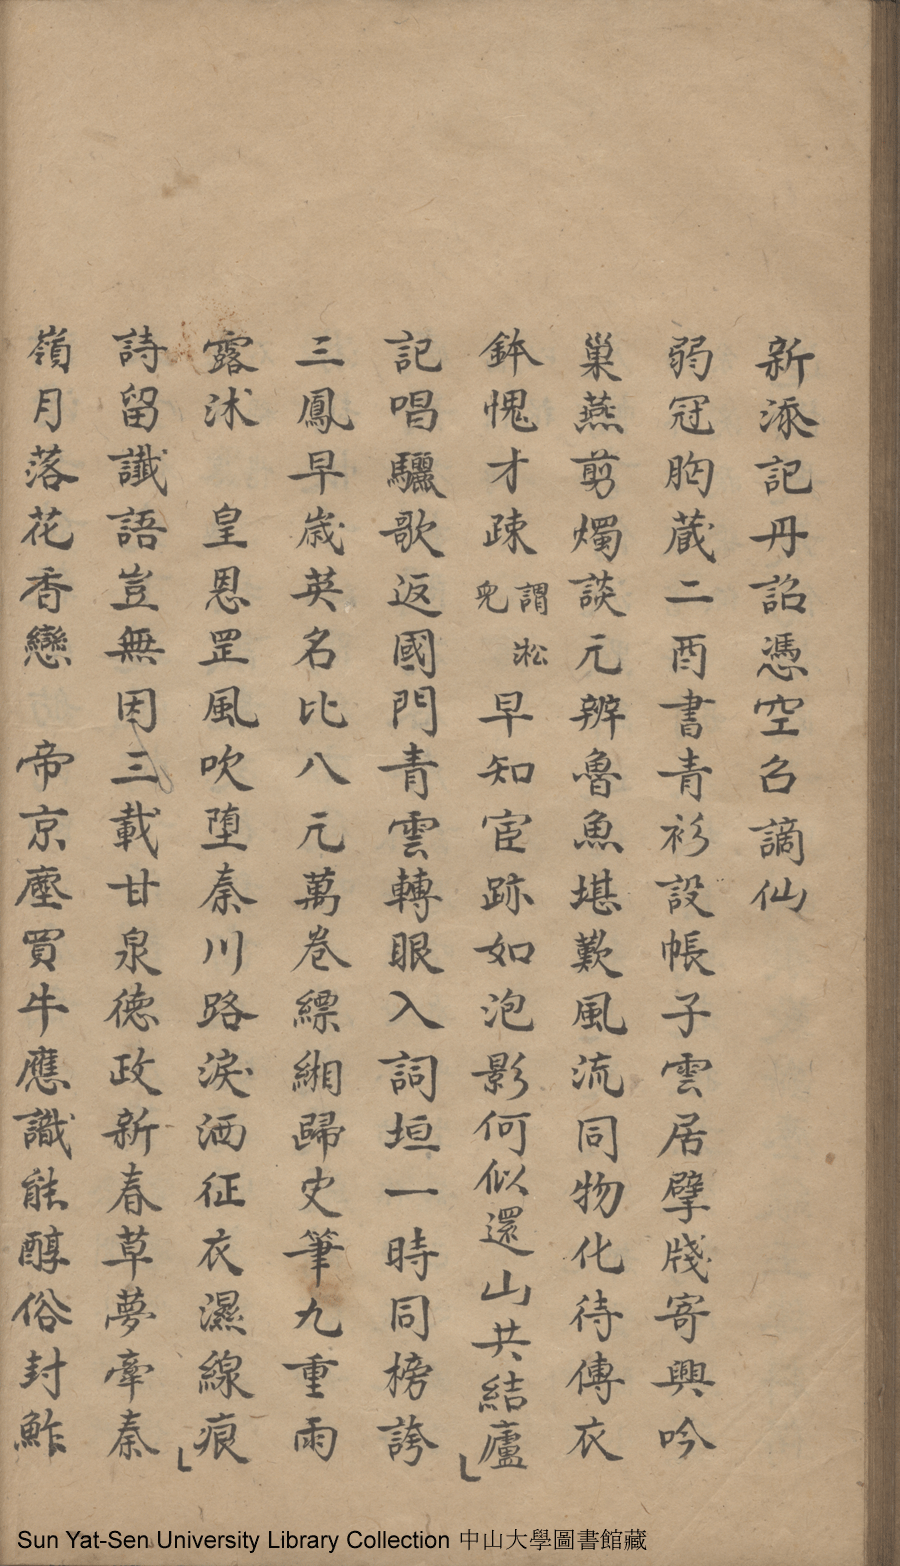 新添記丹詔憑空召謫仙
弱冠胸蔵二酉書青衫設帳子雲居擘牋寄興吟
巢燕剪燭談元辨魯魚堪歎風流同物化待傳衣
鉢愧才疎謂淞兒早知宦跡如泡影何似還山共結廬
記唱驪歌返國門青雲轉眼入詞垣一時同榜誇
三鳳早歲英名比八元萬卷縹緗歸史筆九重雨
露沭 皇恩罡風吹堕秦川路淚洒征衣濕線痕
詩留讖語豈無因三載甘泉德政新春草夢牽秦
嶺月落花香戀 帝京塵買牛應識能醇俗封鮓
Sun Yat-Sen University Library Collection 中山大學圖書館藏